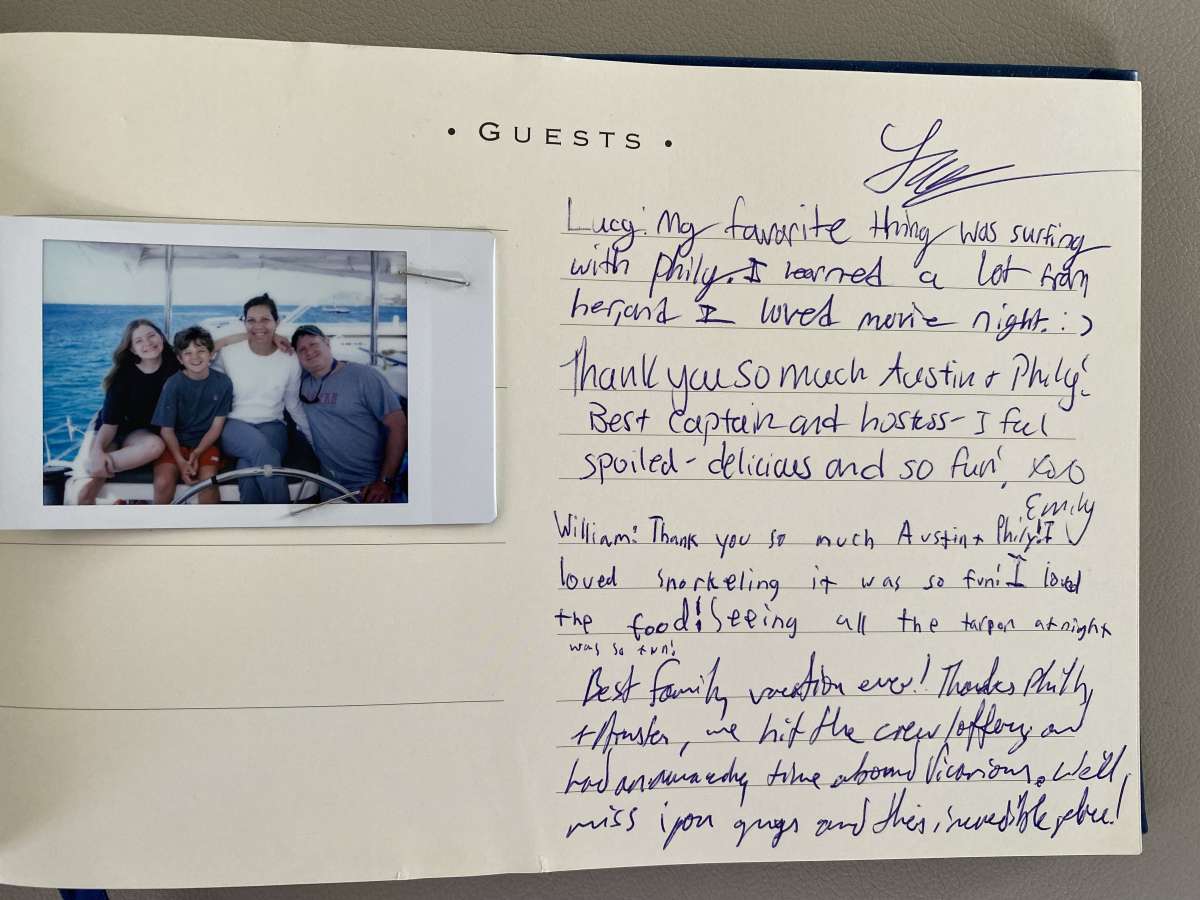 • GUESTS •
Lucy: My favorite thing was surfing
with Phily. I learned a lot from
her, and I loved movie night. :)
Thank you so much Austin + Phily!
Best Captain and hostess - I feel
spoiled - delicious and so fun! xoxo
Emily
William: Thank you so much Austin + Phily! I
loved snorkeling it was so fun! I loved
the food! Seeing all the tarpon at night
was so fun!
Best family vacation ever! Thanks Philly
+ Austin, we hit the crew lottery and
had an amazing time aboard Vicarious. We'll
miss you guys and this incredible place!